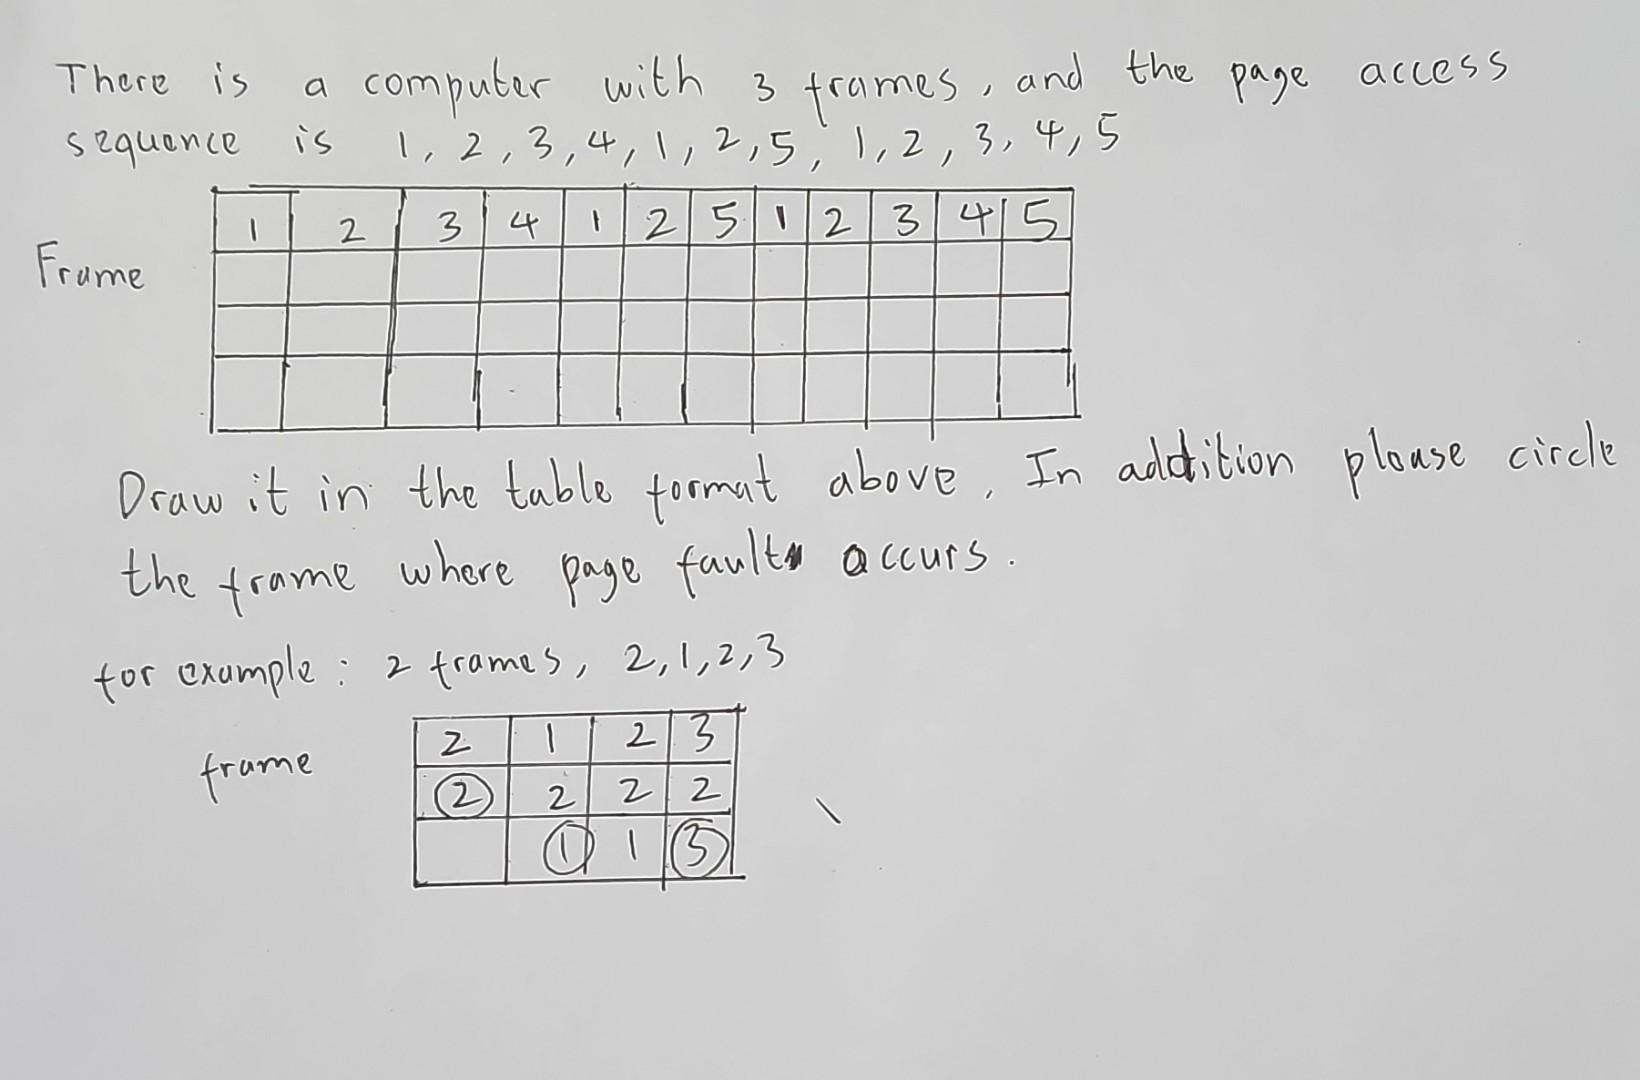 There is a computer with 3 frames, and the page access
sequence is 1, 2, 3, 4, 1, 2, 5, 1, 2, 3, 4, 5
1 2 3 4 1 2 5 1 2 3 4 5
Frame
Draw it in the table format above, In addition please circle
the frame where page fault occurs.
for example : 2 frames, 2, 1, 2, 3
2 1 2 3
frame
2 2 2 2
1 1 3